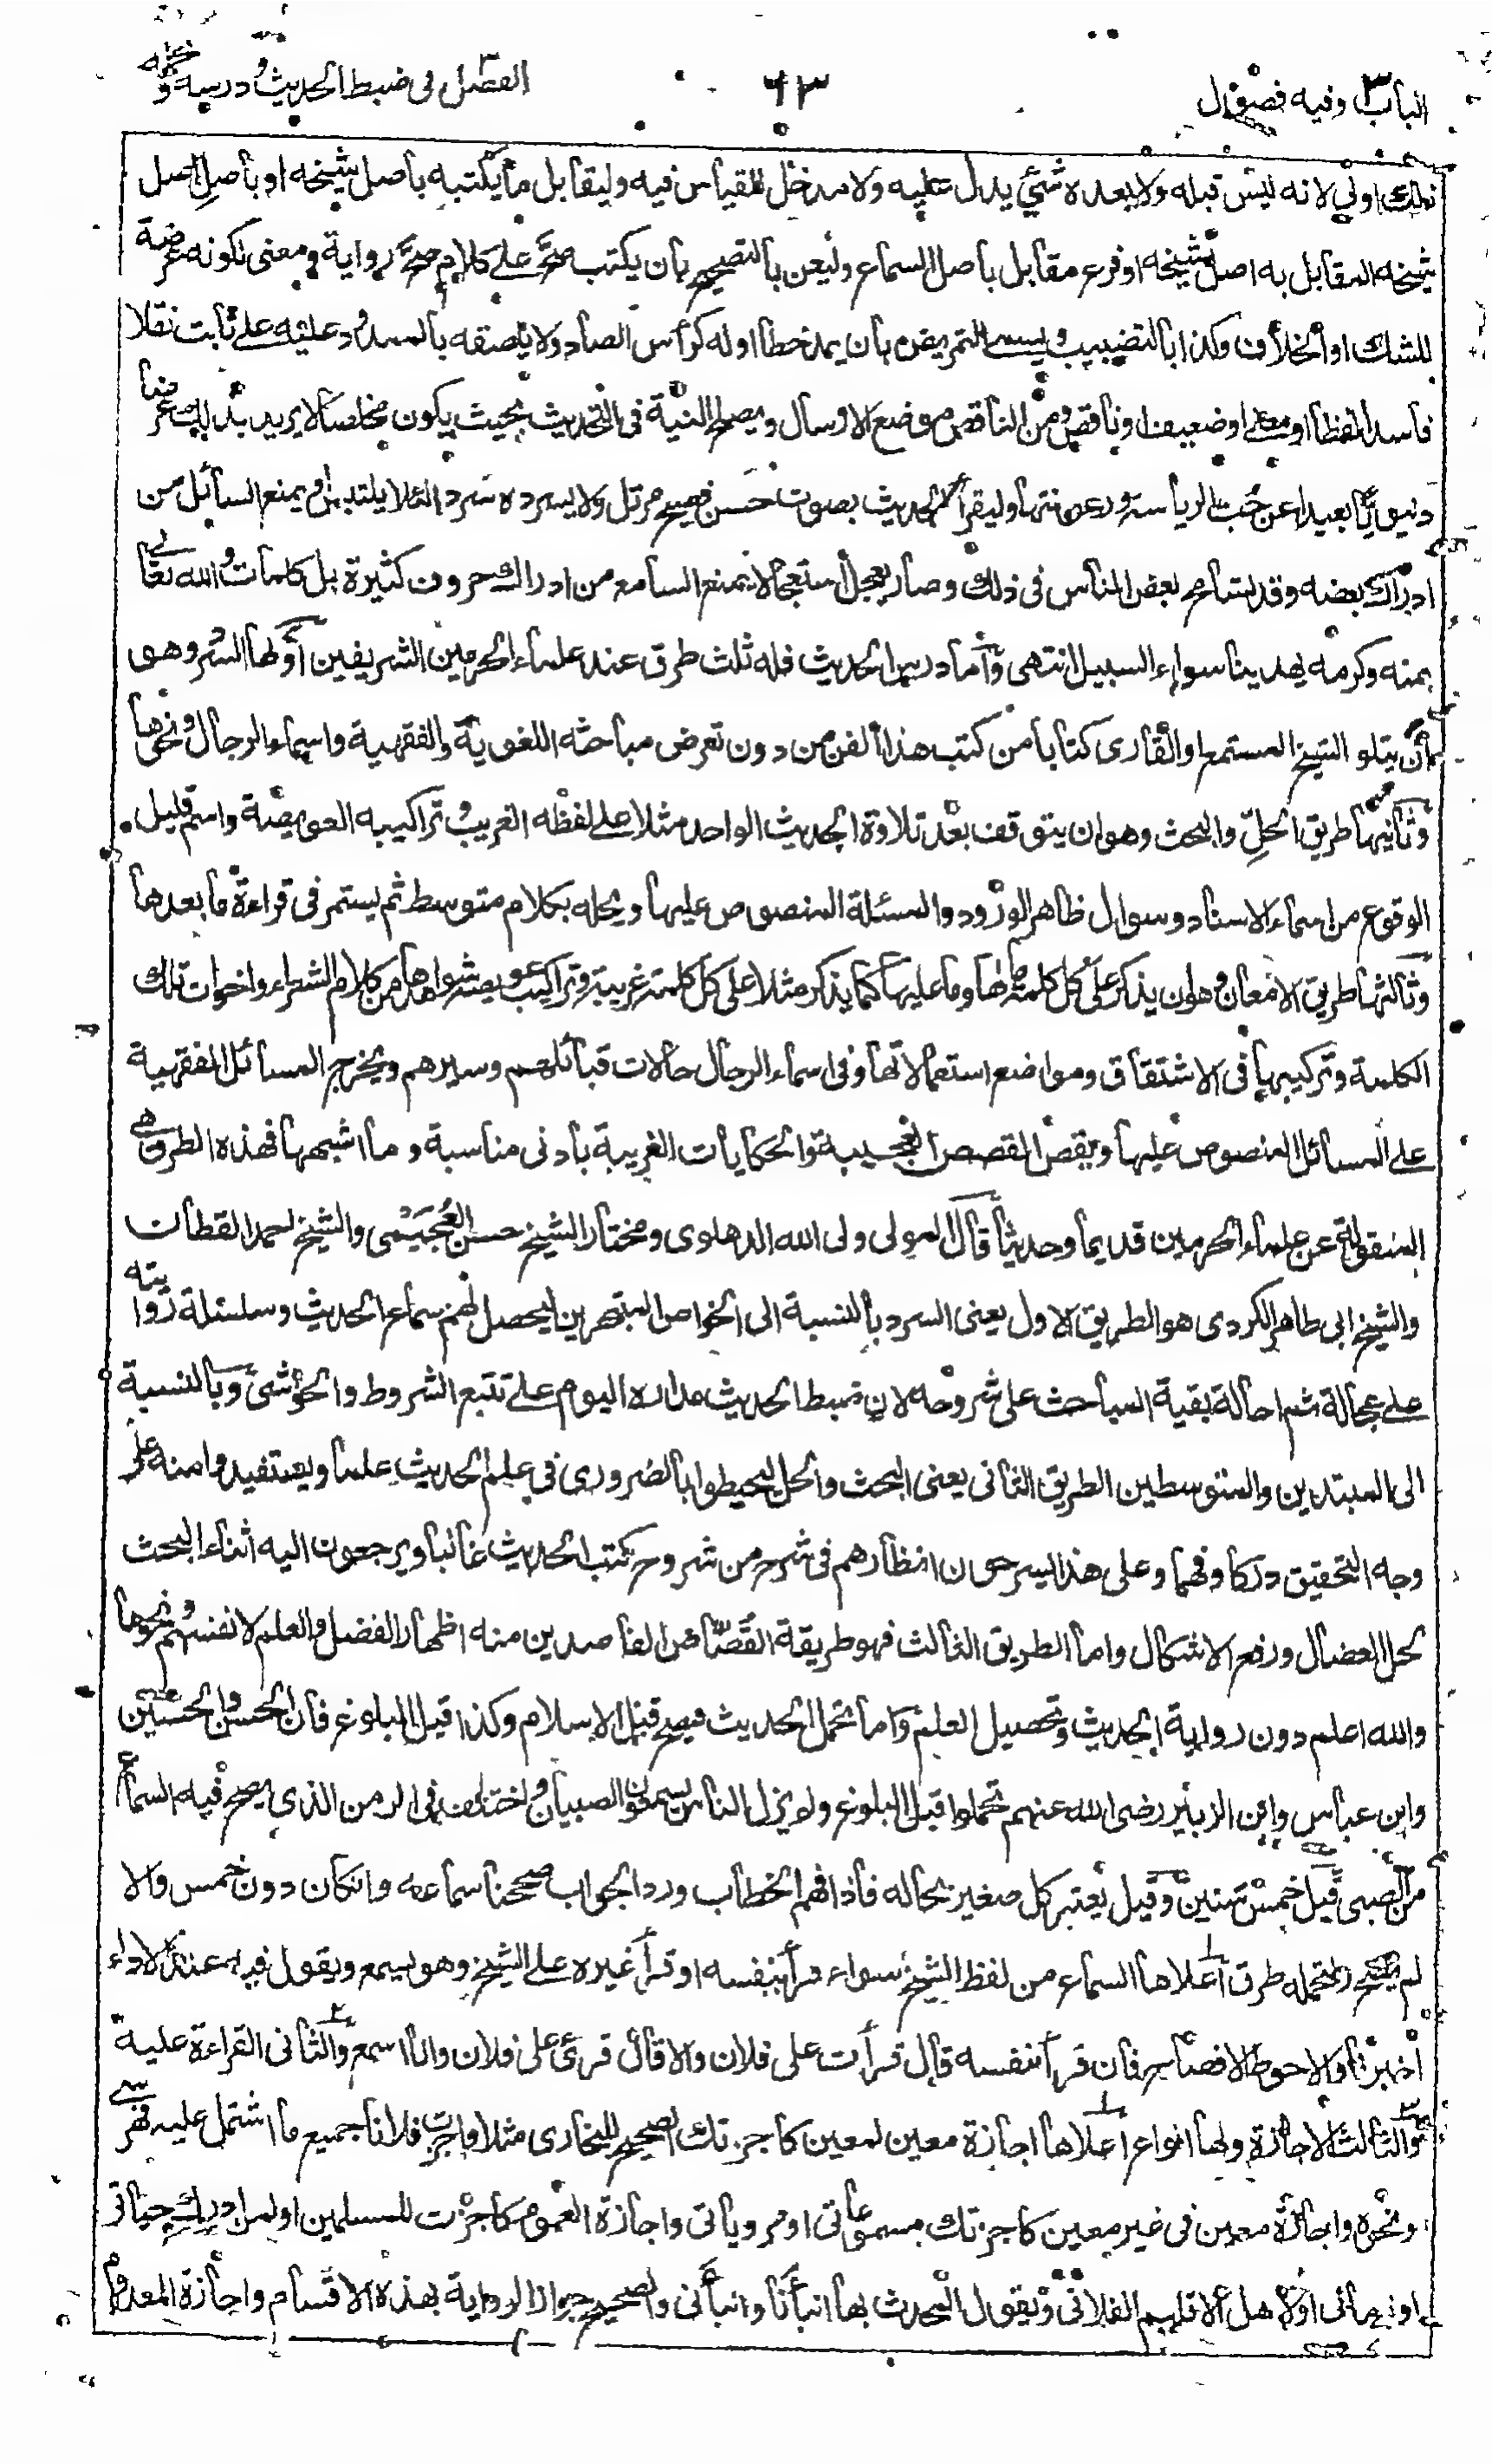 الباب ٣ وفيه فصول
٦٣
الفصل ٣ فى ضبط الحديث ودرسه ونحوه
ذلك اولى لانه ليس قبله ولا بعده شئ يدل عليه ولا مدخل للقياس فيه وليقابل ما يكتبه بأصل شيخه او بأصل اصل
شيخه المقابل به اصل شيخه او فرع مقابل بأصل السماع وليعن بالتصحيح بأن يكتب صح على كلام صح رواية ومعنى لكونه عرضة
للشك او الخلاف وكذا بالتضبيب ويسمى التمريض بأن يمد خطا اوله كرأس الصاد ولا يلصقه بالممدود عليه على ثابت نقلا
فاسد لفظا او معنى او ضعيف او ناقص ومن الناقص موضع الارسال ويصحح النية فى التحديث بحيث يكون مخلصا لا يريد بذلك عرضا
دنيويا بعيدا عن حب الرياسة ورعونتها وليقرأ الحديث بصوت حسن فصيح مرتل ولا يسرده سردا لئلا يلتبس او يمنع السائل من
ادراك بعضه وقد تسامح بعض الناس فى ذلك وصار يعجل استعجالا يمنع السامع من ادراك حروف كثيرة بل كلمات والله تعالى
بمنه وكرمه يهدينا سواء السبيل انتهى وأما درس الحديث فله ثلث طرق عند علماء الحرمين الشريفين أولها السرد وهى
بأن يتلو الشيخ المستمع او القارى كتابا من كتب هذا الفن من دون تعرض مباحثه اللغوية والفقهية واسماء الرجال ونحوها
وثانيها طريق الحل والبحث وهو ان يتوقف بعد تلاوة الحديث الواحد مثلا على لفظه الغريب وتراكيبه العويصة واسم قليل
الوقوع من اسماء الاسناد وسوال ظاهر الورود والمسئلة المنصوص عليها ويحله بكلام متوسط ثم يستمر فى قراءة ما بعدها
وثالثها طريق الامعان وهو ان يذكر على كل كلمة ما لها وما عليها كما يذكر مثلا على كل كلمة غريبة وتراكيب عويصة شواهدها من كلام الشعراء واخوات تلك
الكلمة وتركيبها فى الاشتقاق ومواضع استعمالاتها وفى اسماء الرجال حالات قبائلهم وسيرهم ويخرج المسائل الفقهية
على المسائل المنصوص عليها ويقص القصص العجيبة والحكايات الغريبة بادنى مناسبة وما اشبهها فهذه الطرق هى
المنقولة عن علماء الحرمين قديما وحديثا قال المولى ولى الله الدهلوى ومختار الشيخ حسن العجيمى والشيخ احمد القطان
والشيخ ابى طاهر الكردى هو الطريق الاول يعنى السرد بالنسبة الى الخواص المتبحرين ليحصل لهم سماع الحديث وسلسلة روايته
على عجالة ثم احالة بقية المباحث على شروحه لان ضبط الحديث مداره اليوم على تتبع الشروط والحواشى وبالنسبة
الى المبتدين والمتوسطين الطريق الثانى يعنى البحث والحل ليحيطوا بالضرورى فى علم الحديث علما ويستفيدوا منه على
وجه التحقيق دركا وفهما وعلى هذا يسرحون انظارهم فى شرح من شروح كتب الحديث غالبا ويرجعون اليه اثناء البحث
لحل العضال ورفع الاشكال واما الطريق الثالث فهو طريقة القصاص القاصدين منه اظهار الفضل والعلم لانفسهم ونحوها
والله اعلم دون رواية الحديث وتحصيل العلم واما تحمل الحديث فيصح قبل الاسلام وكذا قبل البلوغ فان الحسن والحسين
وابن عباس وابن الزبير رضى الله عنهم تحملوا قبل البلوغ ولم يزل الناس يسمعون الصبيان واختلف فى الزمن الذى يصح فيه السماع
من الصبى قيل خمس سنين وقيل يعتبر كل صغير بحاله فاذا فهم الخطاب ورد الجواب صححنا سماعه وان كان دون خمس والا
لم يصح ولتحمله طرق أعلاها السماع من لفظ الشيخ سواء قرأ بنفسه او قرأ غيره على الشيخ وهو يسمع ويقول فيه عند الاداء
أخبرنا والاحوط الافصاح فان قرأ بنفسه قال قرأت على فلان والا قال قرئ على فلان وانا اسمع والثانى القراءة عليه
والثالث الاجازة ولها انواع اعلاها اجازة معين لمعين كاجزتك الصحيح للبخارى مثلا واجزت فلانا جميع ما اشتمل عليه فهرسى
ونحوه واجازة معين فى غير معين كاجزتك مسموعاتى او مروياتى واجازة العموم كاجزت للمسلمين او لمن ادرك حياتى
او زمانى او لاهل الاقليم الفلانى ويقول المحدث بها انبأنا وانبأنى والصحيح جواز الرواية بهذه الاقسام واجازة المعدوم